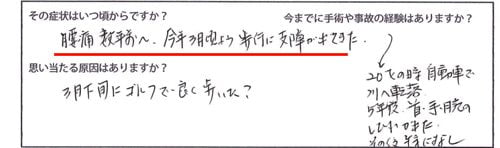 その症状はいつ頃からですか？
今までに手術や事故の経験はありますか？
腰痛 数年前〜. 今年3月頃より歩行に支障が出てきた.
思い当たる原因はありますか？
3月下旬にゴルフで良く歩いた？
20才の時 自動車で
川へ転落
5年後. 首・手・肩の
しびれがきた.
その後 特になし